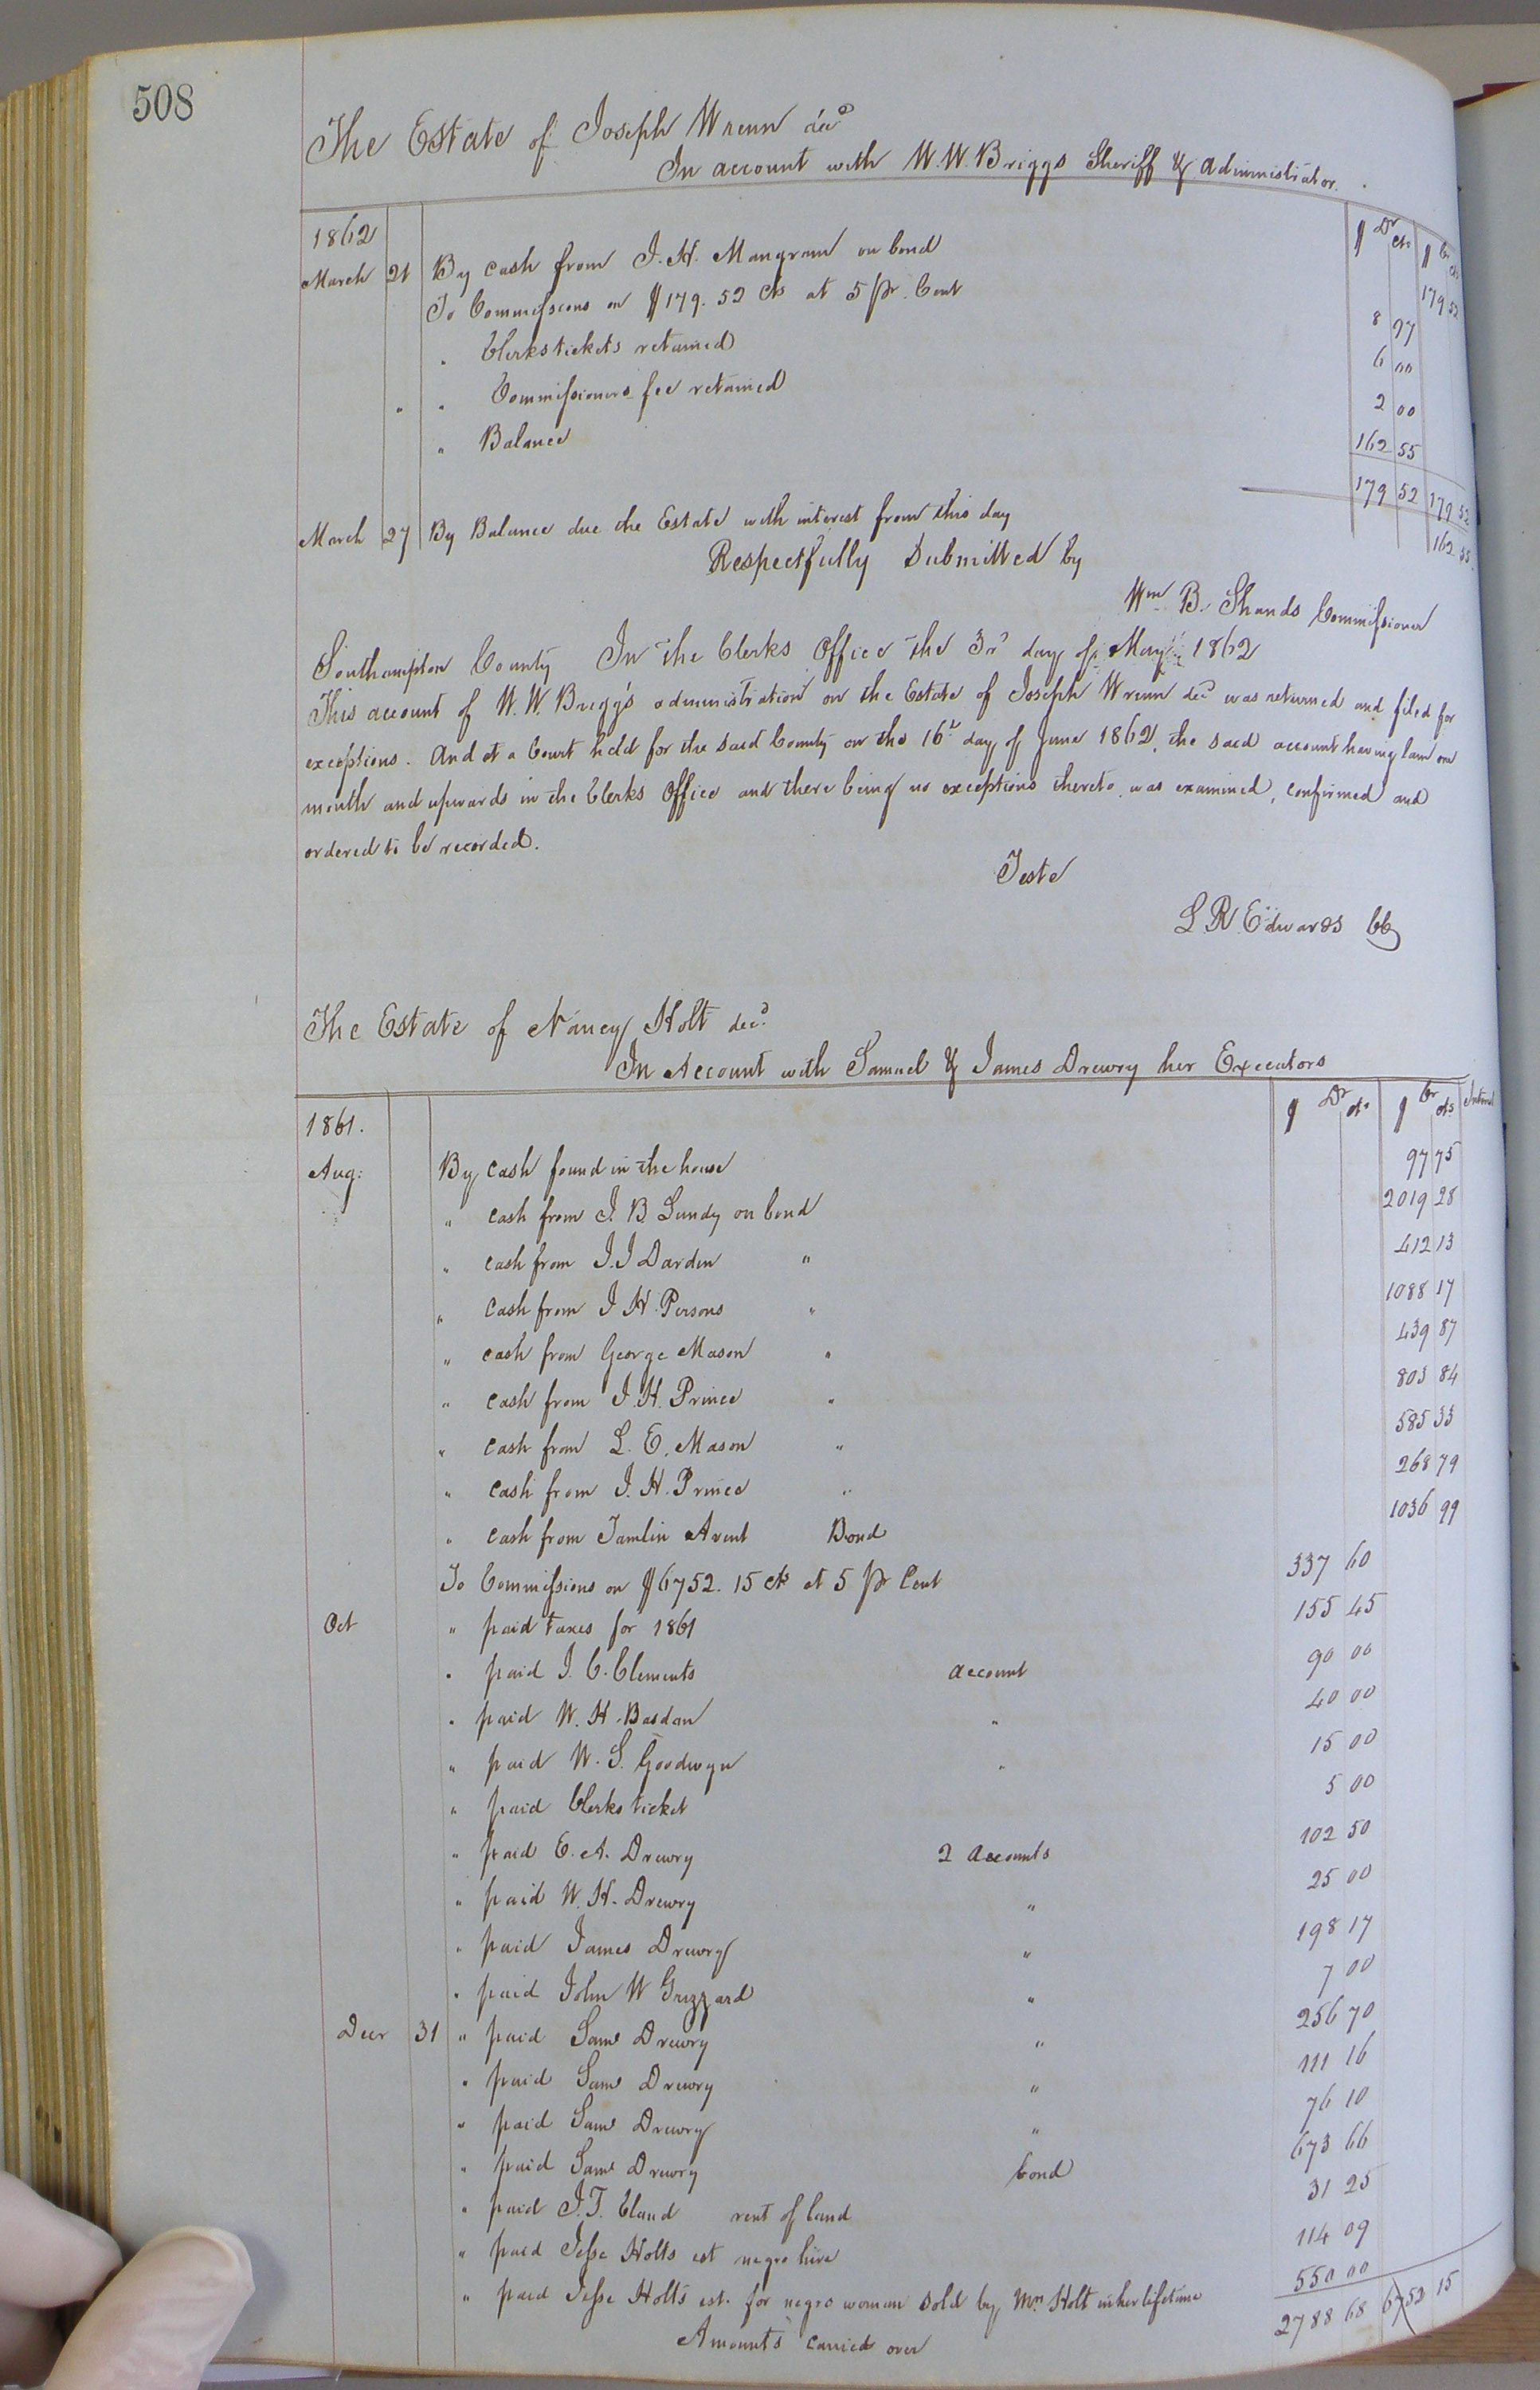 508
The Estate of Joseph Wrenn decd
In account with W. W. Briggs Sheriff & administrator.
$ Dr cts $ Cr cts
1862
March 21 By cash from J. H. Mangram on bond 179 52
To Commissions on $179. 52 cts at 5 pr. Cent 8 97
" Clerks tickets retained 6 00
" " Commissioners fee retained 2 00
" Balance 162 55
179 52 179 52
March 27 By Balance due the Estate with interest from this day 162 55
Respectfully Submitted by
Wm B. Shands Commissioner
Southampton County In the Clerks Office the 3rd day of May 1862
This account of W. W. Briggs administration on the Estate of Joseph Wrenn decd was returned and filed for
exceptions. And at a Court held for the said County on the 16th day of June 1862, the said account having lain one
month and upwards in the Clerks Office and there being no exceptions thereto, was examined, confirmed and
ordered to be recorded.
Teste
L R Edwards CC
The Estate of Nancy Holt decd.
In Account with Samuel & James Drewry her Executors
$ Dr cts $ Cr cts Interest
1861.
Aug: By cash found in the house 97 75
" cash from J. B. Lundy on bond 2019 28
" cash from J. J Darden " 412 13
" Cash from J H. Persons " 1088 17
" cash from George Mason " 439 87
" cash from J. H. Prince " 803 84
" cash from L. E. Mason " 585 33
" cash from J. H. Prince " 268 79
" cash from Tamlin Avent Bond 1036 99
To Commissions on $6752. 15 cts at 5 pr Cent 337 60
Oct " paid taxes for 1861 155 45
" paid J. C. Clements account 90 00
" paid W. H. Basdan " 40 00
" paid W. S. Goodwyn " 15 00
" paid Clerks ticket 5 00
" paid E. A. Drewry 2 accounts 102 50
" paid W. H. Drewry " 25 00
" paid James Drewry " 198 17
" paid John W Grizzard " 7 00
Decr 31 " paid Saml Drewry " 256 70
" paid Saml Drewry " 111 16
" paid Saml Drewry " 76 10
" paid Saml Drewry bond 673 66
" paid J. T. Bland rent of land 31 25
" paid Jesse Holts est negro hire 114 09
" paid Jesse Holts est. for negro woman sold by Mrs Holt in her lifetime 550 00
Amounts carried over 2788 68 6752 15